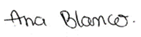 Ana Blanco.